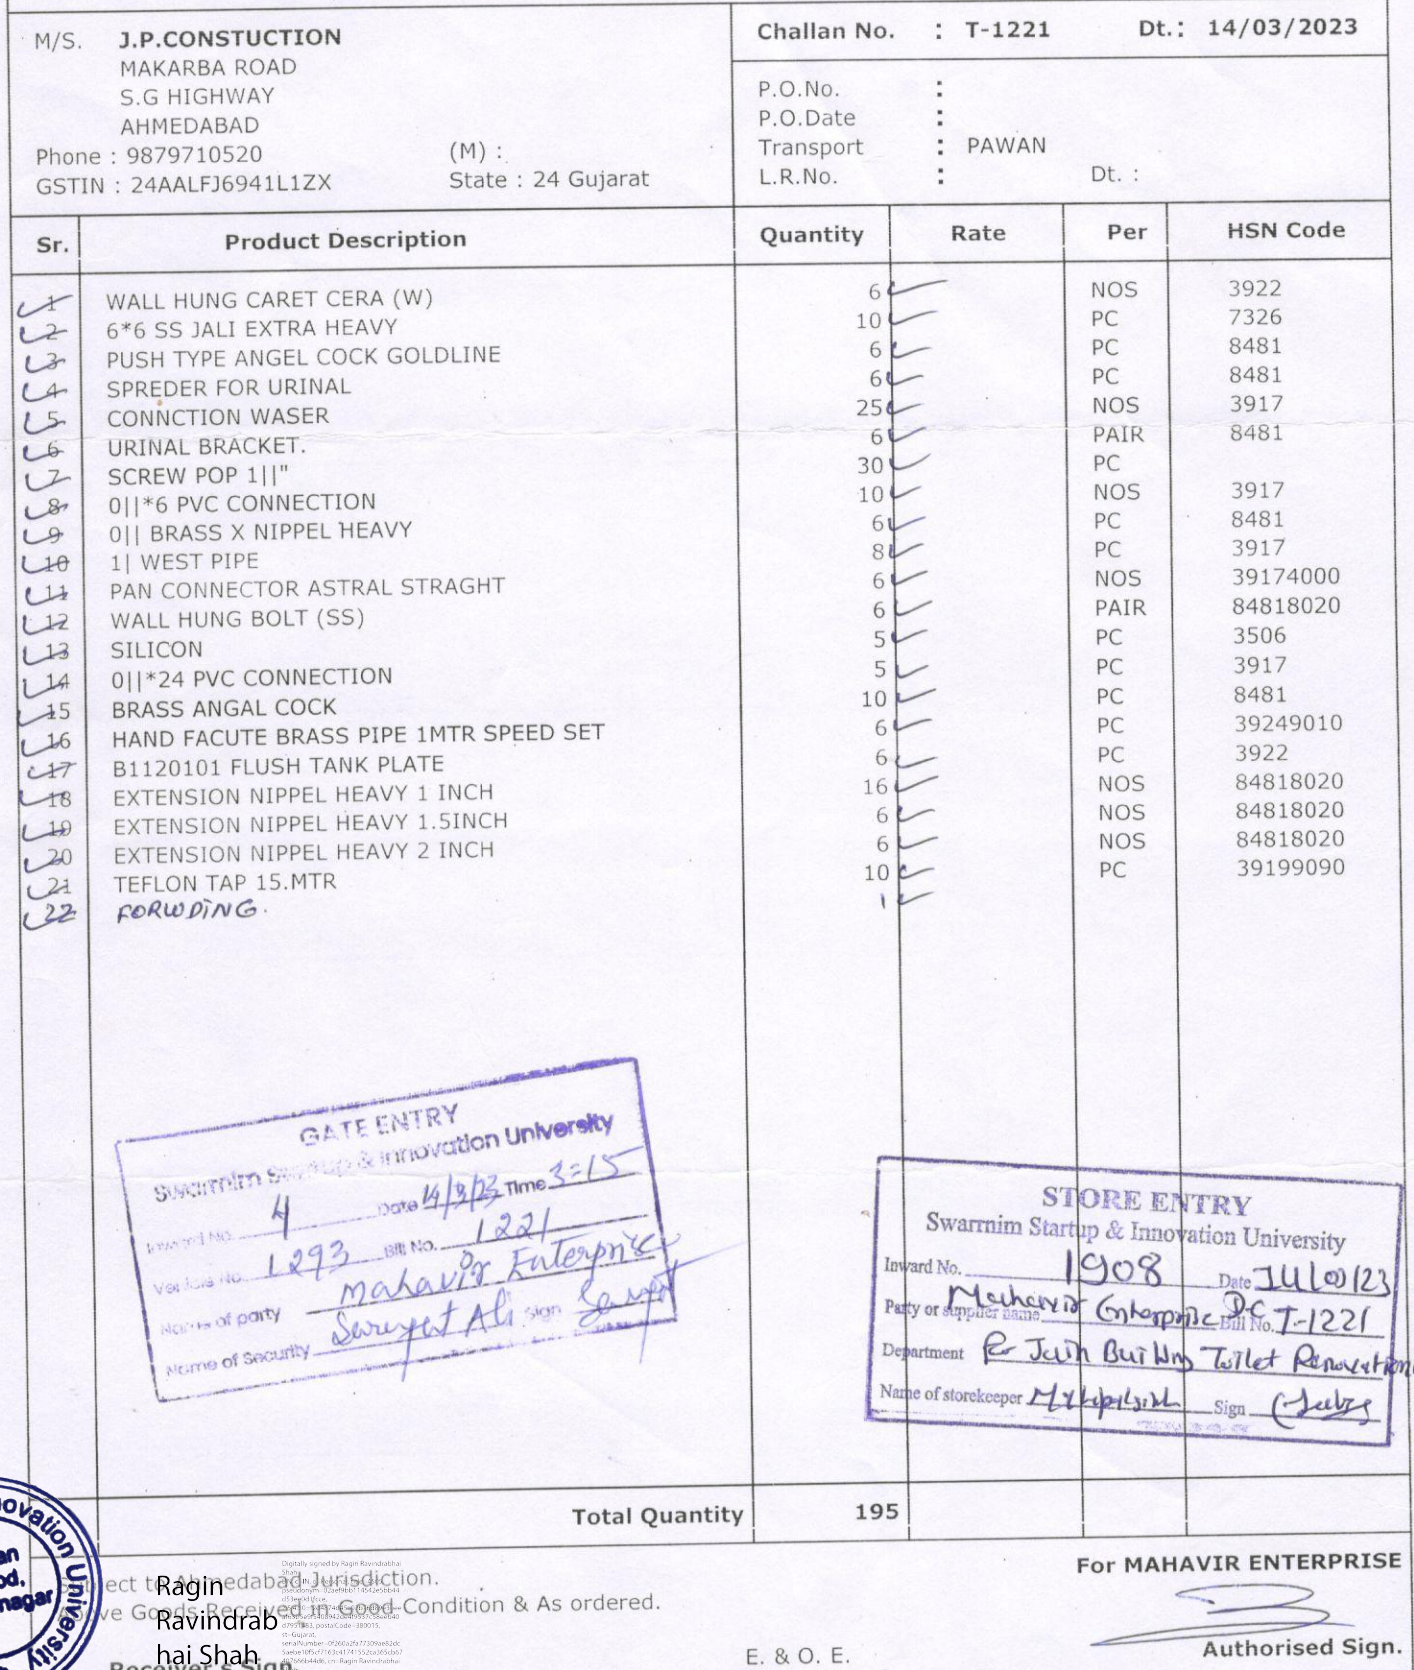 M/S. J.P.CONSTUCTION
MAKARBA ROAD
S.G HIGHWAY
AHMEDABAD
Phone : 9879710520 (M) :
GSTIN : 24AALFJ6941L1ZX State : 24 Gujarat
Challan No. : T-1221 Dt.: 14/03/2023
P.O.No. :
P.O.Date :
Transport : PAWAN
L.R.No. : Dt. :
Sr. Product Description Quantity Rate Per HSN Code
1 WALL HUNG CARET CERA (W) 6 NOS 3922
2 6*6 SS JALI EXTRA HEAVY 10 PC 7326
3 PUSH TYPE ANGEL COCK GOLDLINE 6 PC 8481
4 SPREDER FOR URINAL 6 PC 8481
5 CONNCTION WASER 25 NOS 3917
6 URINAL BRACKET. 6 PAIR 8481
7 SCREW POP 1||" 30 PC
8 0||*6 PVC CONNECTION 10 NOS 3917
9 0|| BRASS X NIPPEL HEAVY 6 PC 8481
10 1| WEST PIPE 8 PC 3917
11 PAN CONNECTOR ASTRAL STRAGHT 6 NOS 39174000
12 WALL HUNG BOLT (SS) 6 PAIR 84818020
13 SILICON 5 PC 3506
14 0||*24 PVC CONNECTION 5 PC 3917
15 BRASS ANGAL COCK 10 PC 8481
16 HAND FACUTE BRASS PIPE 1MTR SPEED SET 6 PC 39249010
17 B1120101 FLUSH TANK PLATE 6 PC 3922
18 EXTENSION NIPPEL HEAVY 1 INCH 16 NOS 84818020
19 EXTENSION NIPPEL HEAVY 1.5INCH 6 NOS 84818020
20 EXTENSION NIPPEL HEAVY 2 INCH 6 NOS 84818020
21 TEFLON TAP 15.MTR 10 PC 39199090
22 FORWDING. 1
GATE ENTRY
Swarrnim Startup & Innovation University
Inward No. 4 Date 14/3/23 Time 3=15
Vehicle No. 1293 Bill No. 1221
Name of party Mahavir Enterprise
Name of Security Ali Sign
STORE ENTRY
Swarrnim Startup & Innovation University
Inward No. 1908 Date
Party or supplier name Mahavir Enterprise DC Bill No. T-1221
Department Jain Building Toilet Renovation
Name of storekeeper Sign
Total Quantity 195
ovation University
nagar
Subject to Ahmedabad Jurisdiction.
Above Goods Received in Good Condition & As ordered.
Ragin
Ravindrab
hai Shah
Digitally signed by Ragin Ravindrabhai
Shah
Receiver's Sign
E. & O. E.
For MAHAVIR ENTERPRISE
Authorised Sign.